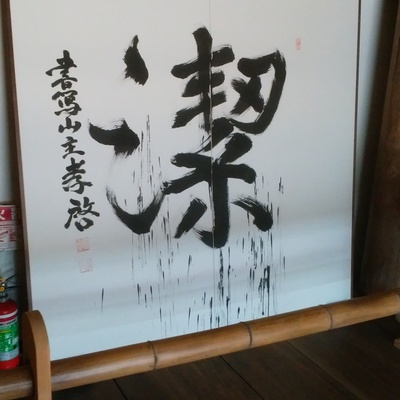 潔
書写山主孝啓